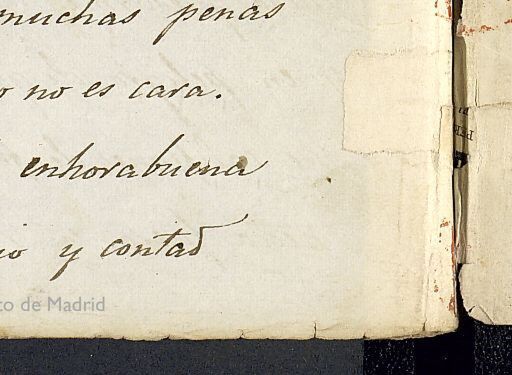 muchas penas
o no es cara.
enhorabuena
io y contad
to de Madrid